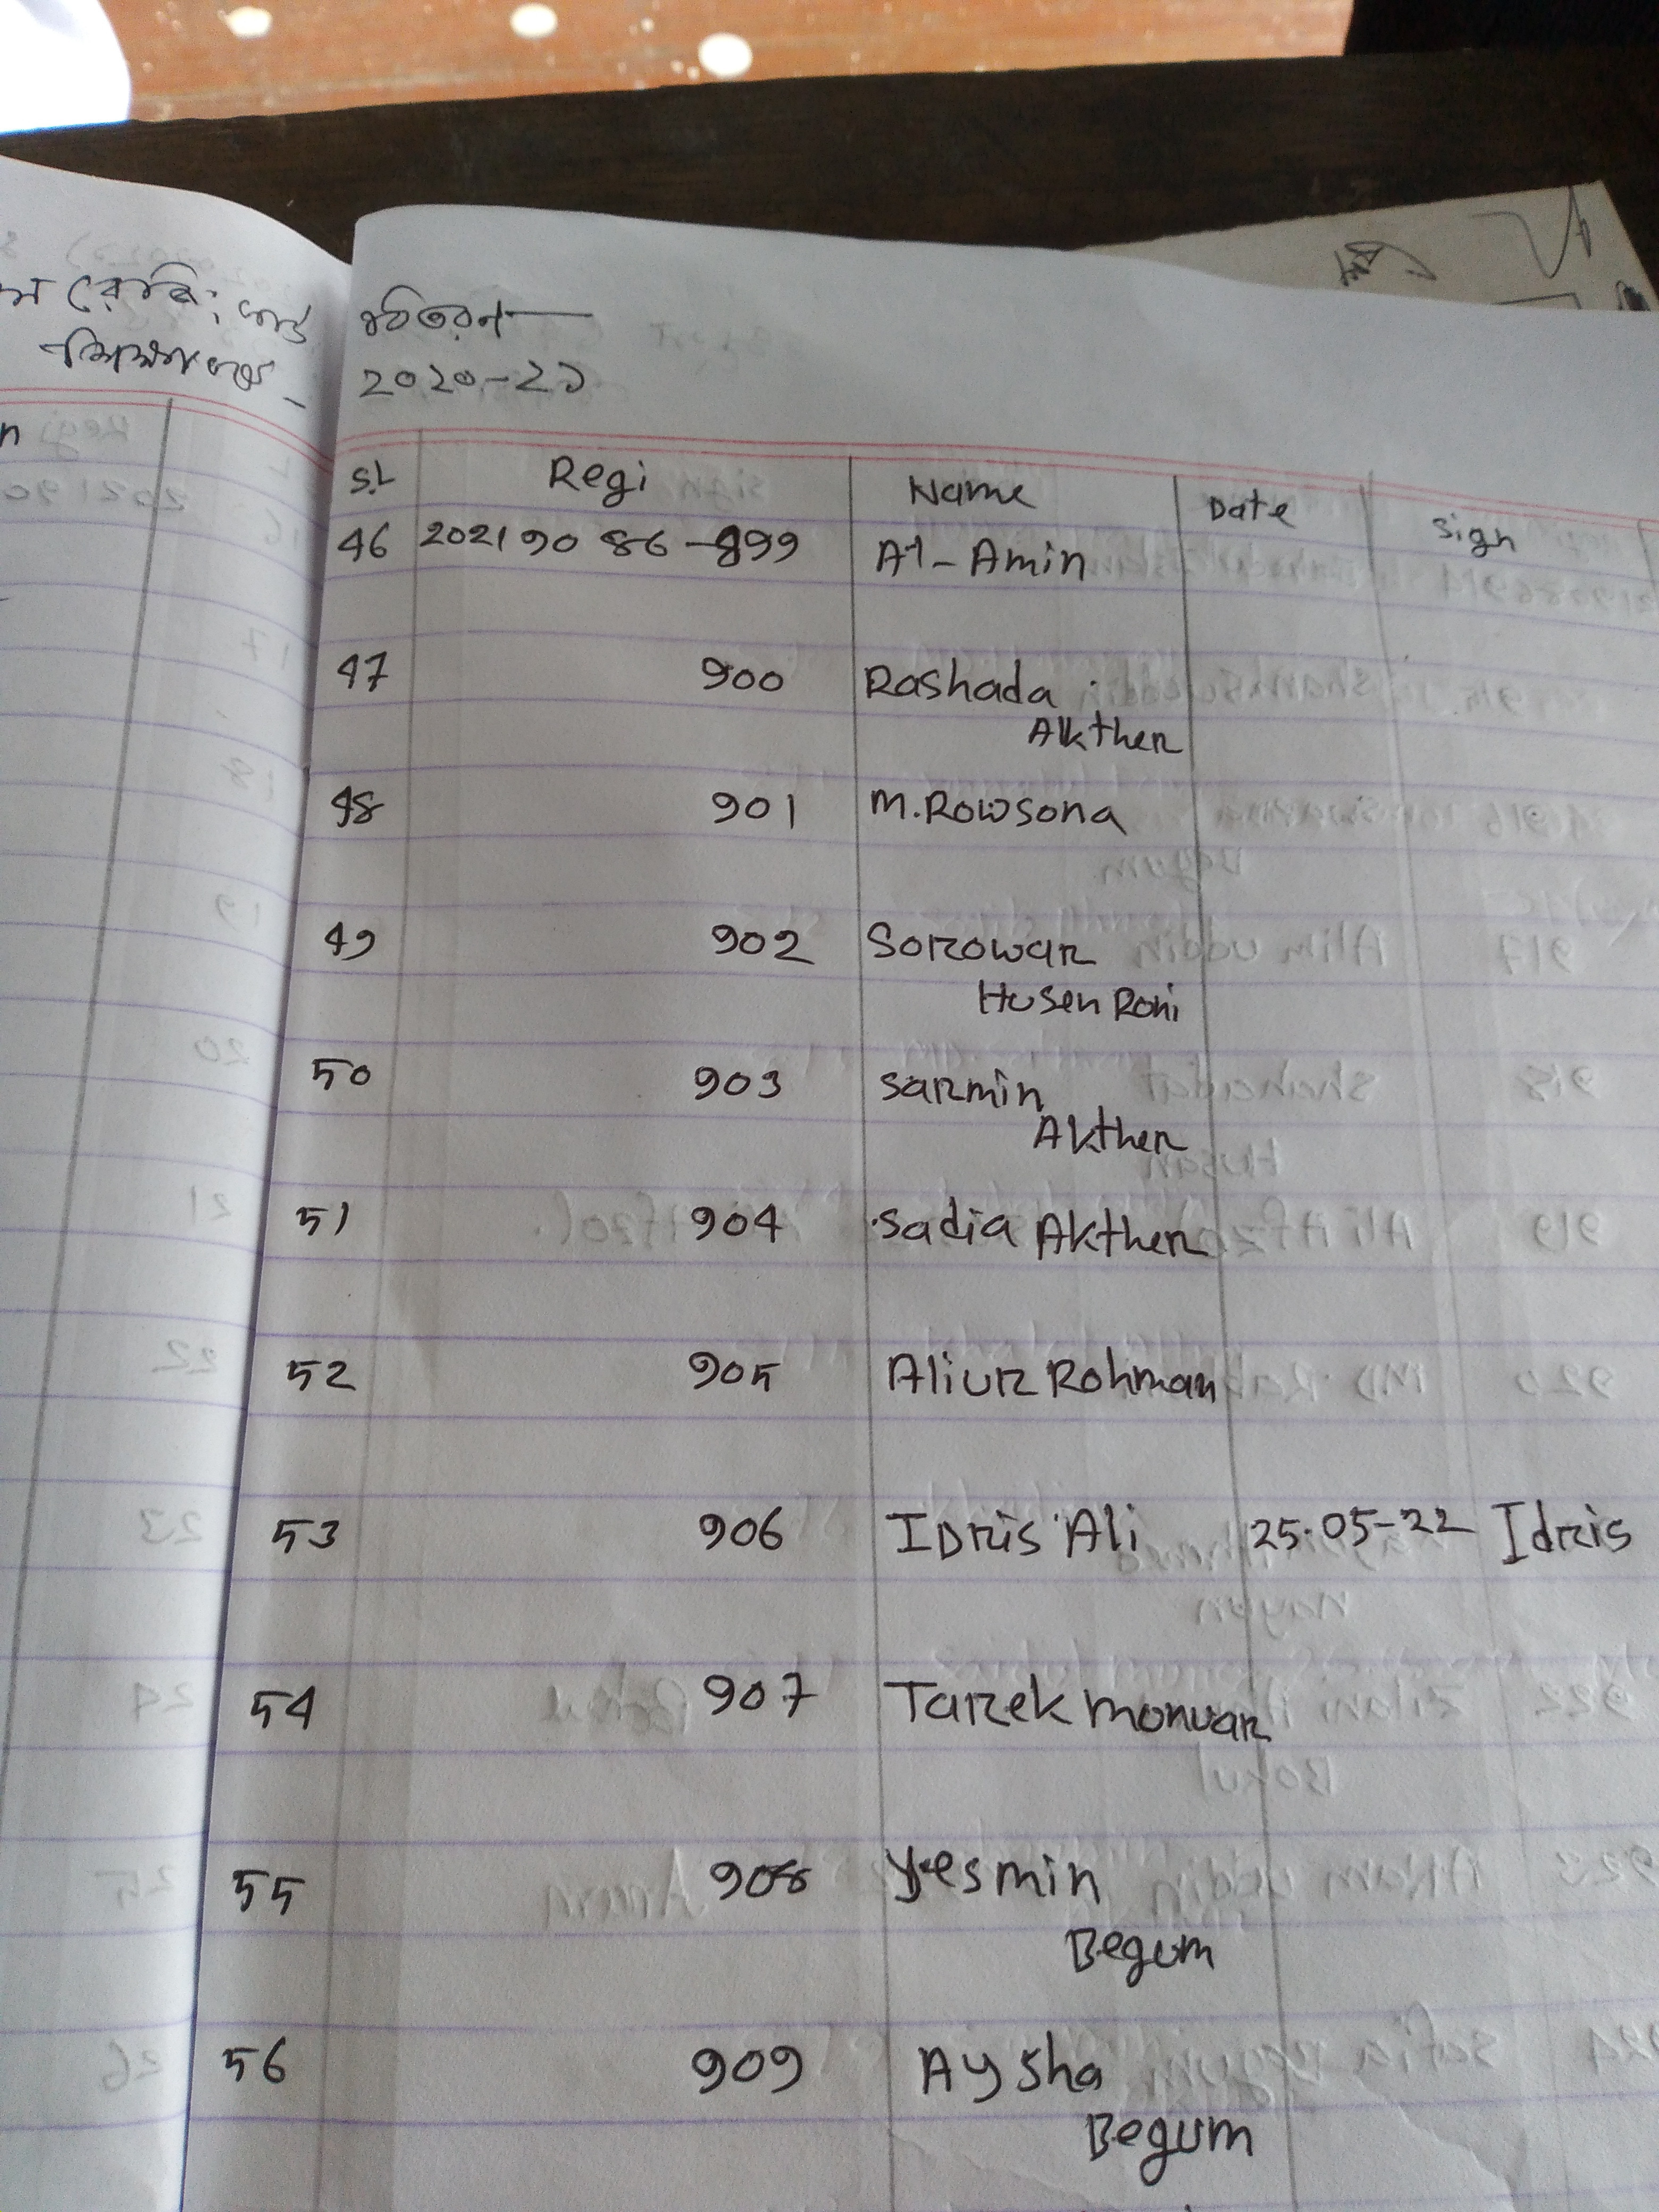 বিতরন
2020-21
SL Regi Name Date Sign
46 202190 86-899 Al-Amin
47 900 Rashada
Akther
48 901 M.Rowsona
49 902 Sorowar
Husen Roni
50 903 Sarmin
Akther
51 904 Sadia Akther
52 905 Aliur Rohman
53 906 IDris Ali 25.05-22 Idris
54 907 Tarek monuar
55 908 Yesmin
Begum
56 909 Aysha
Begum